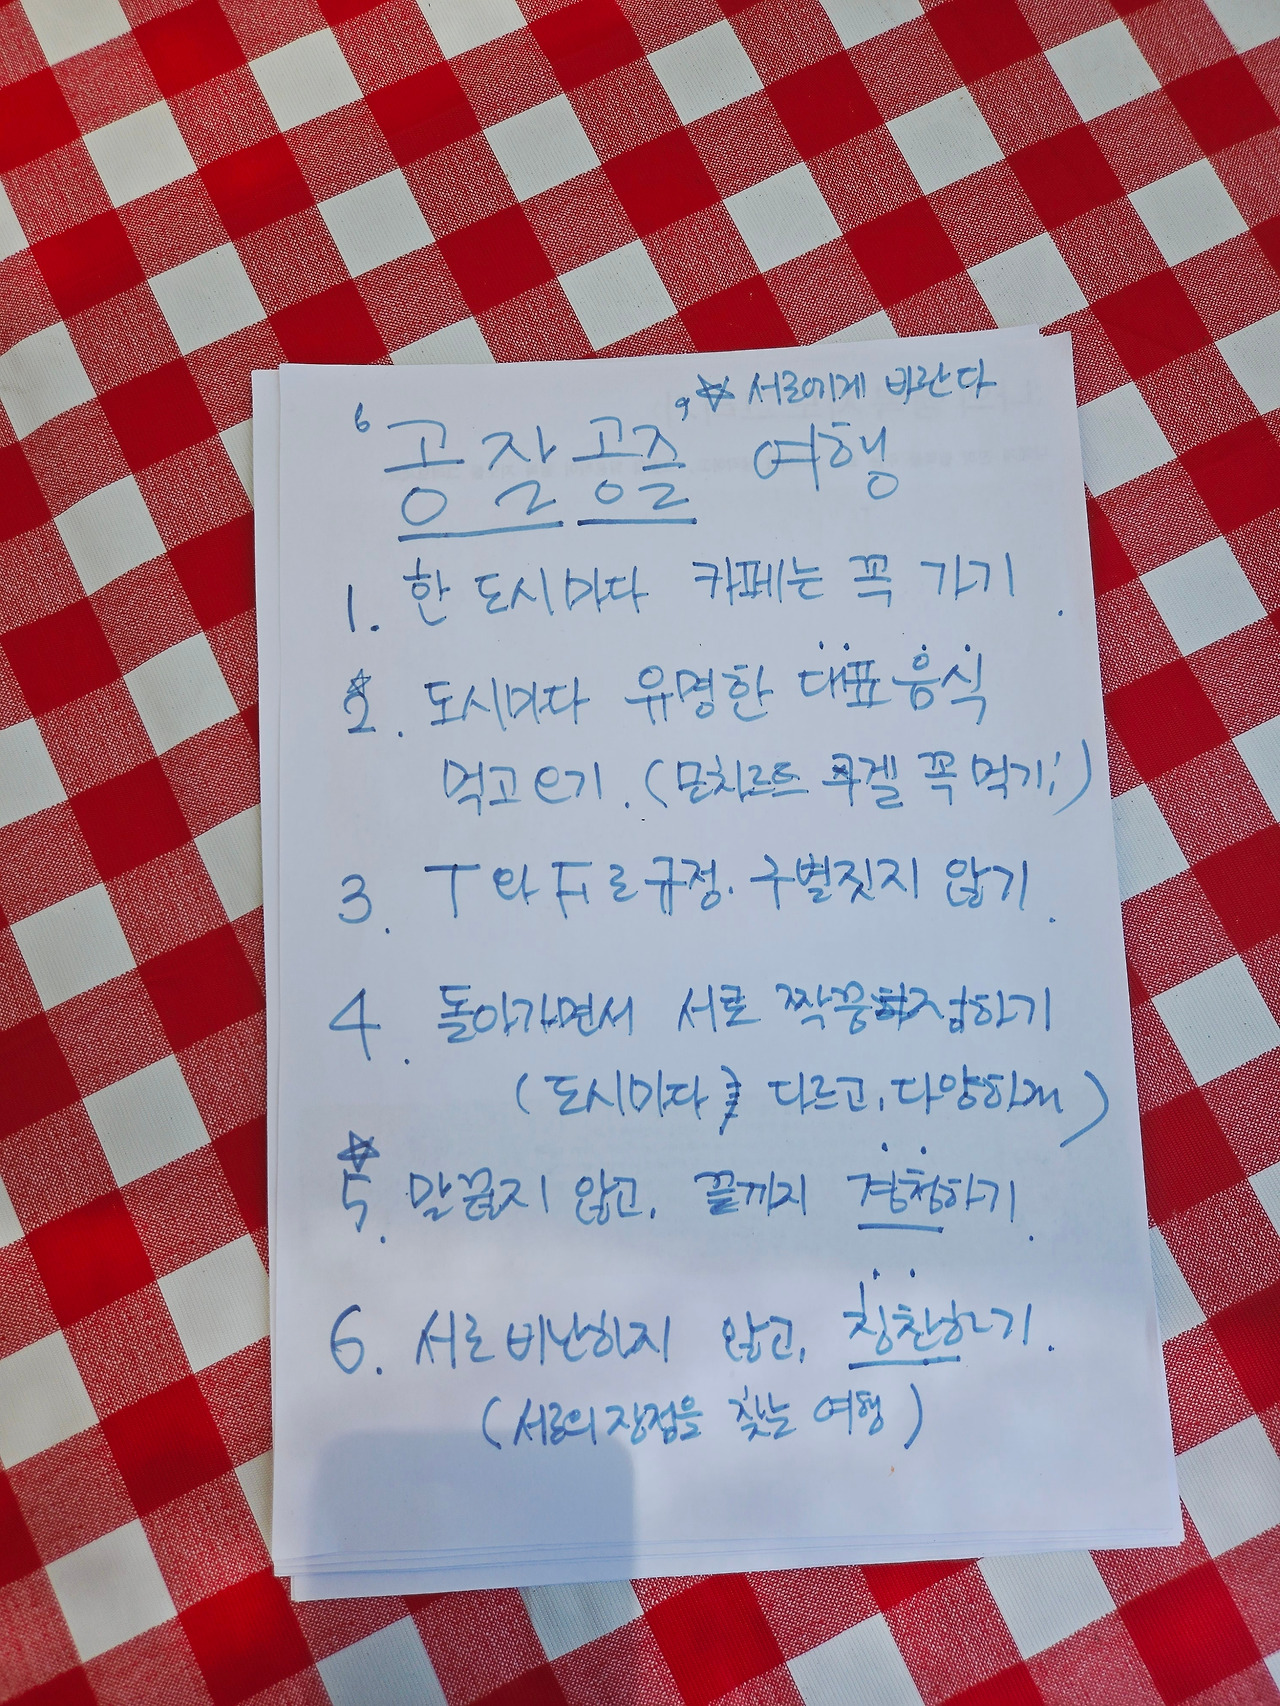 ☆ 서로에게 바란다
"공잘공즐" 여행
1. 한 도시마다 카페는 꼭 가기.
☆2. 도시마다 유명한 대표음식
먹고 오기. (모차르트 쿠겔 꼭 먹기!)
3. T와 F로 규정. 구별짓지 않기.
4. 돌아가면서 서로 짝꿍하기
(도시마다 다르고, 다양하게)
☆5. 말끊지 않고, 끝까지 경청하기.
6. 서로 비난하지 않고, 칭찬하기.
(서로의 장점을 찾는 여행)